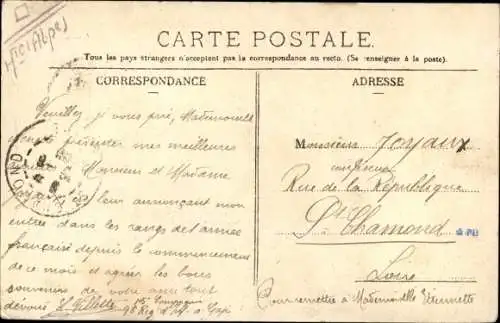 Htes Alpes
CARTE POSTALE.
Tous les pays étrangers n'acceptent pas la correspondance au recto. (Se renseigner à la poste).
CORRESPONDANCE
ADRESSE
Veuillez je vous prie, Mademoiselle
présenter mes meilleures
Monsieur et Madame
leur annonçant mon
entrée dans les rangs de l'armée
française depuis le commencement
de ce mois et agréer les bons
souvenirs de votre ami tout
dévoué H. Villette
Compagnie
à Gap
Monsieur Joyaux
confiseur
Rue de la République
St Chamond
Loire
Pour remettre à Mademoiselle Etiennette